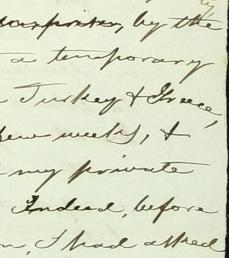 by the
a temporary
Turkey & Greece,
few weeks, &
my private
Indeed, before
I had asked